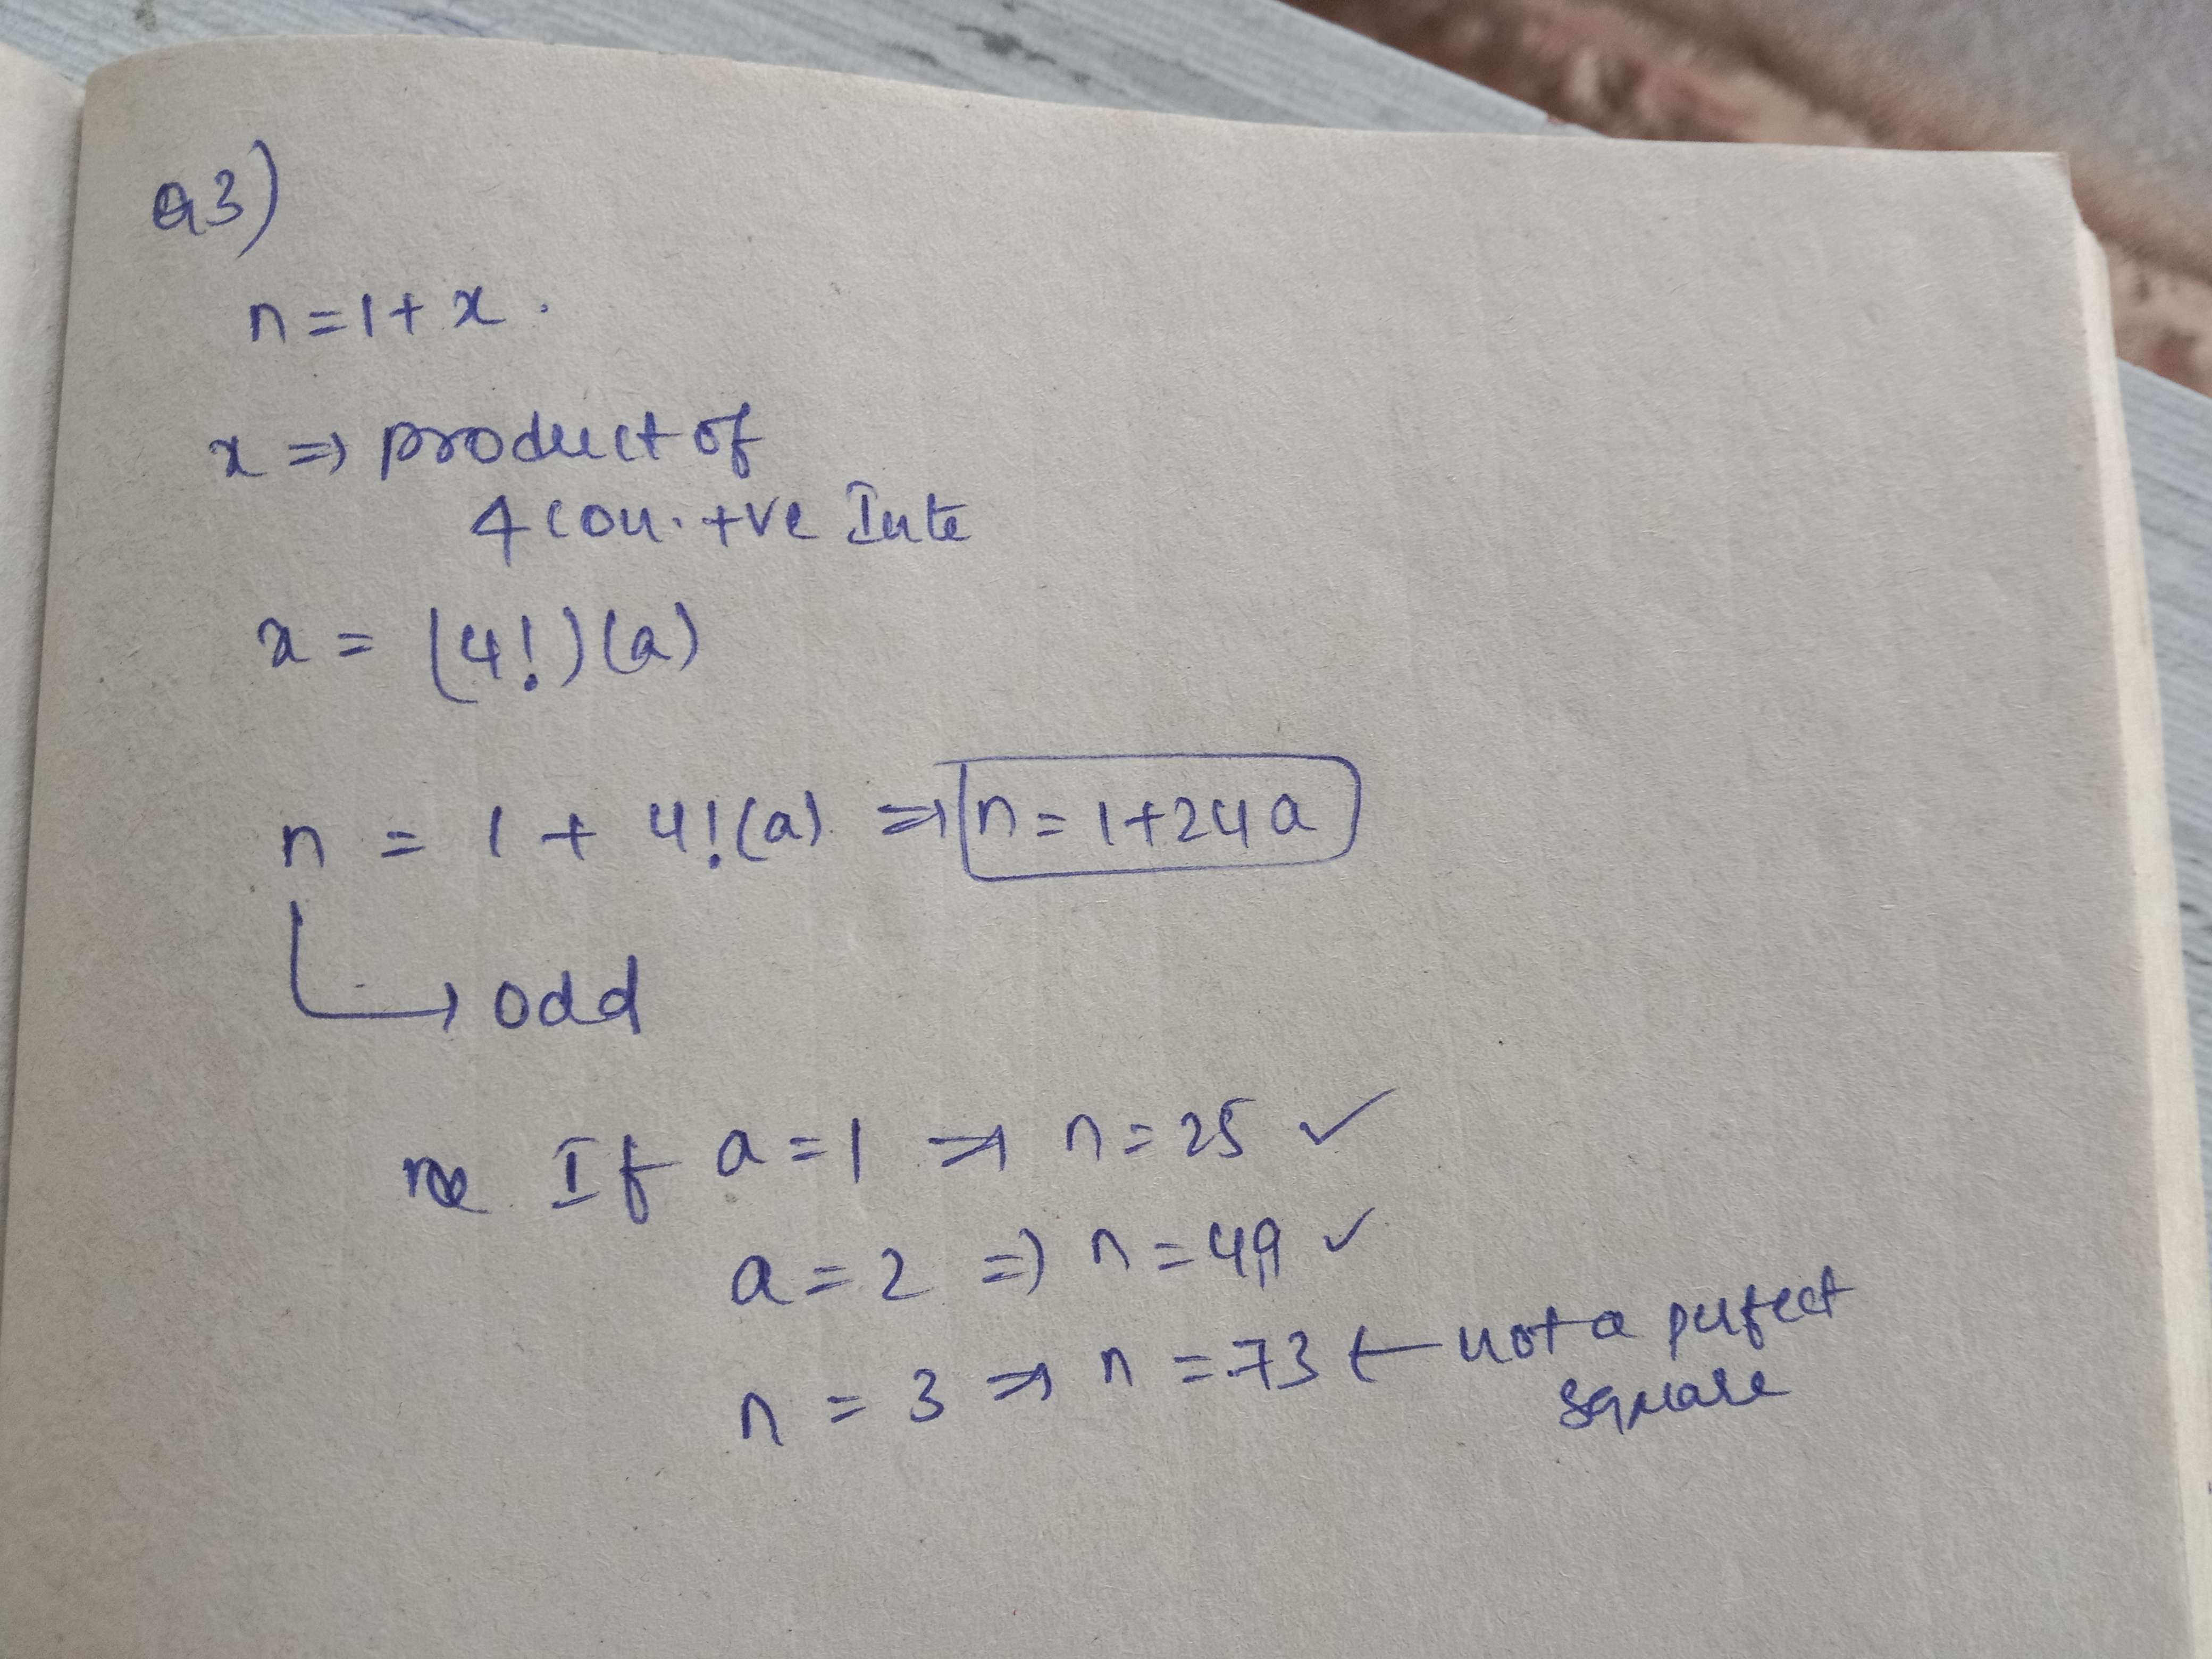 Q3)
n = 1 + x .
x ⇒ product of
4 con. +ve Inte
x = (4!)(a)
n = 1 + 4!(a) ⇒ n = 1+24a
↳ odd
If a = 1 ⇒ n = 25 ✓
a = 2 ⇒ n = 49 ✓
n = 3 ⇒ n = 73 ← not a perfect
square